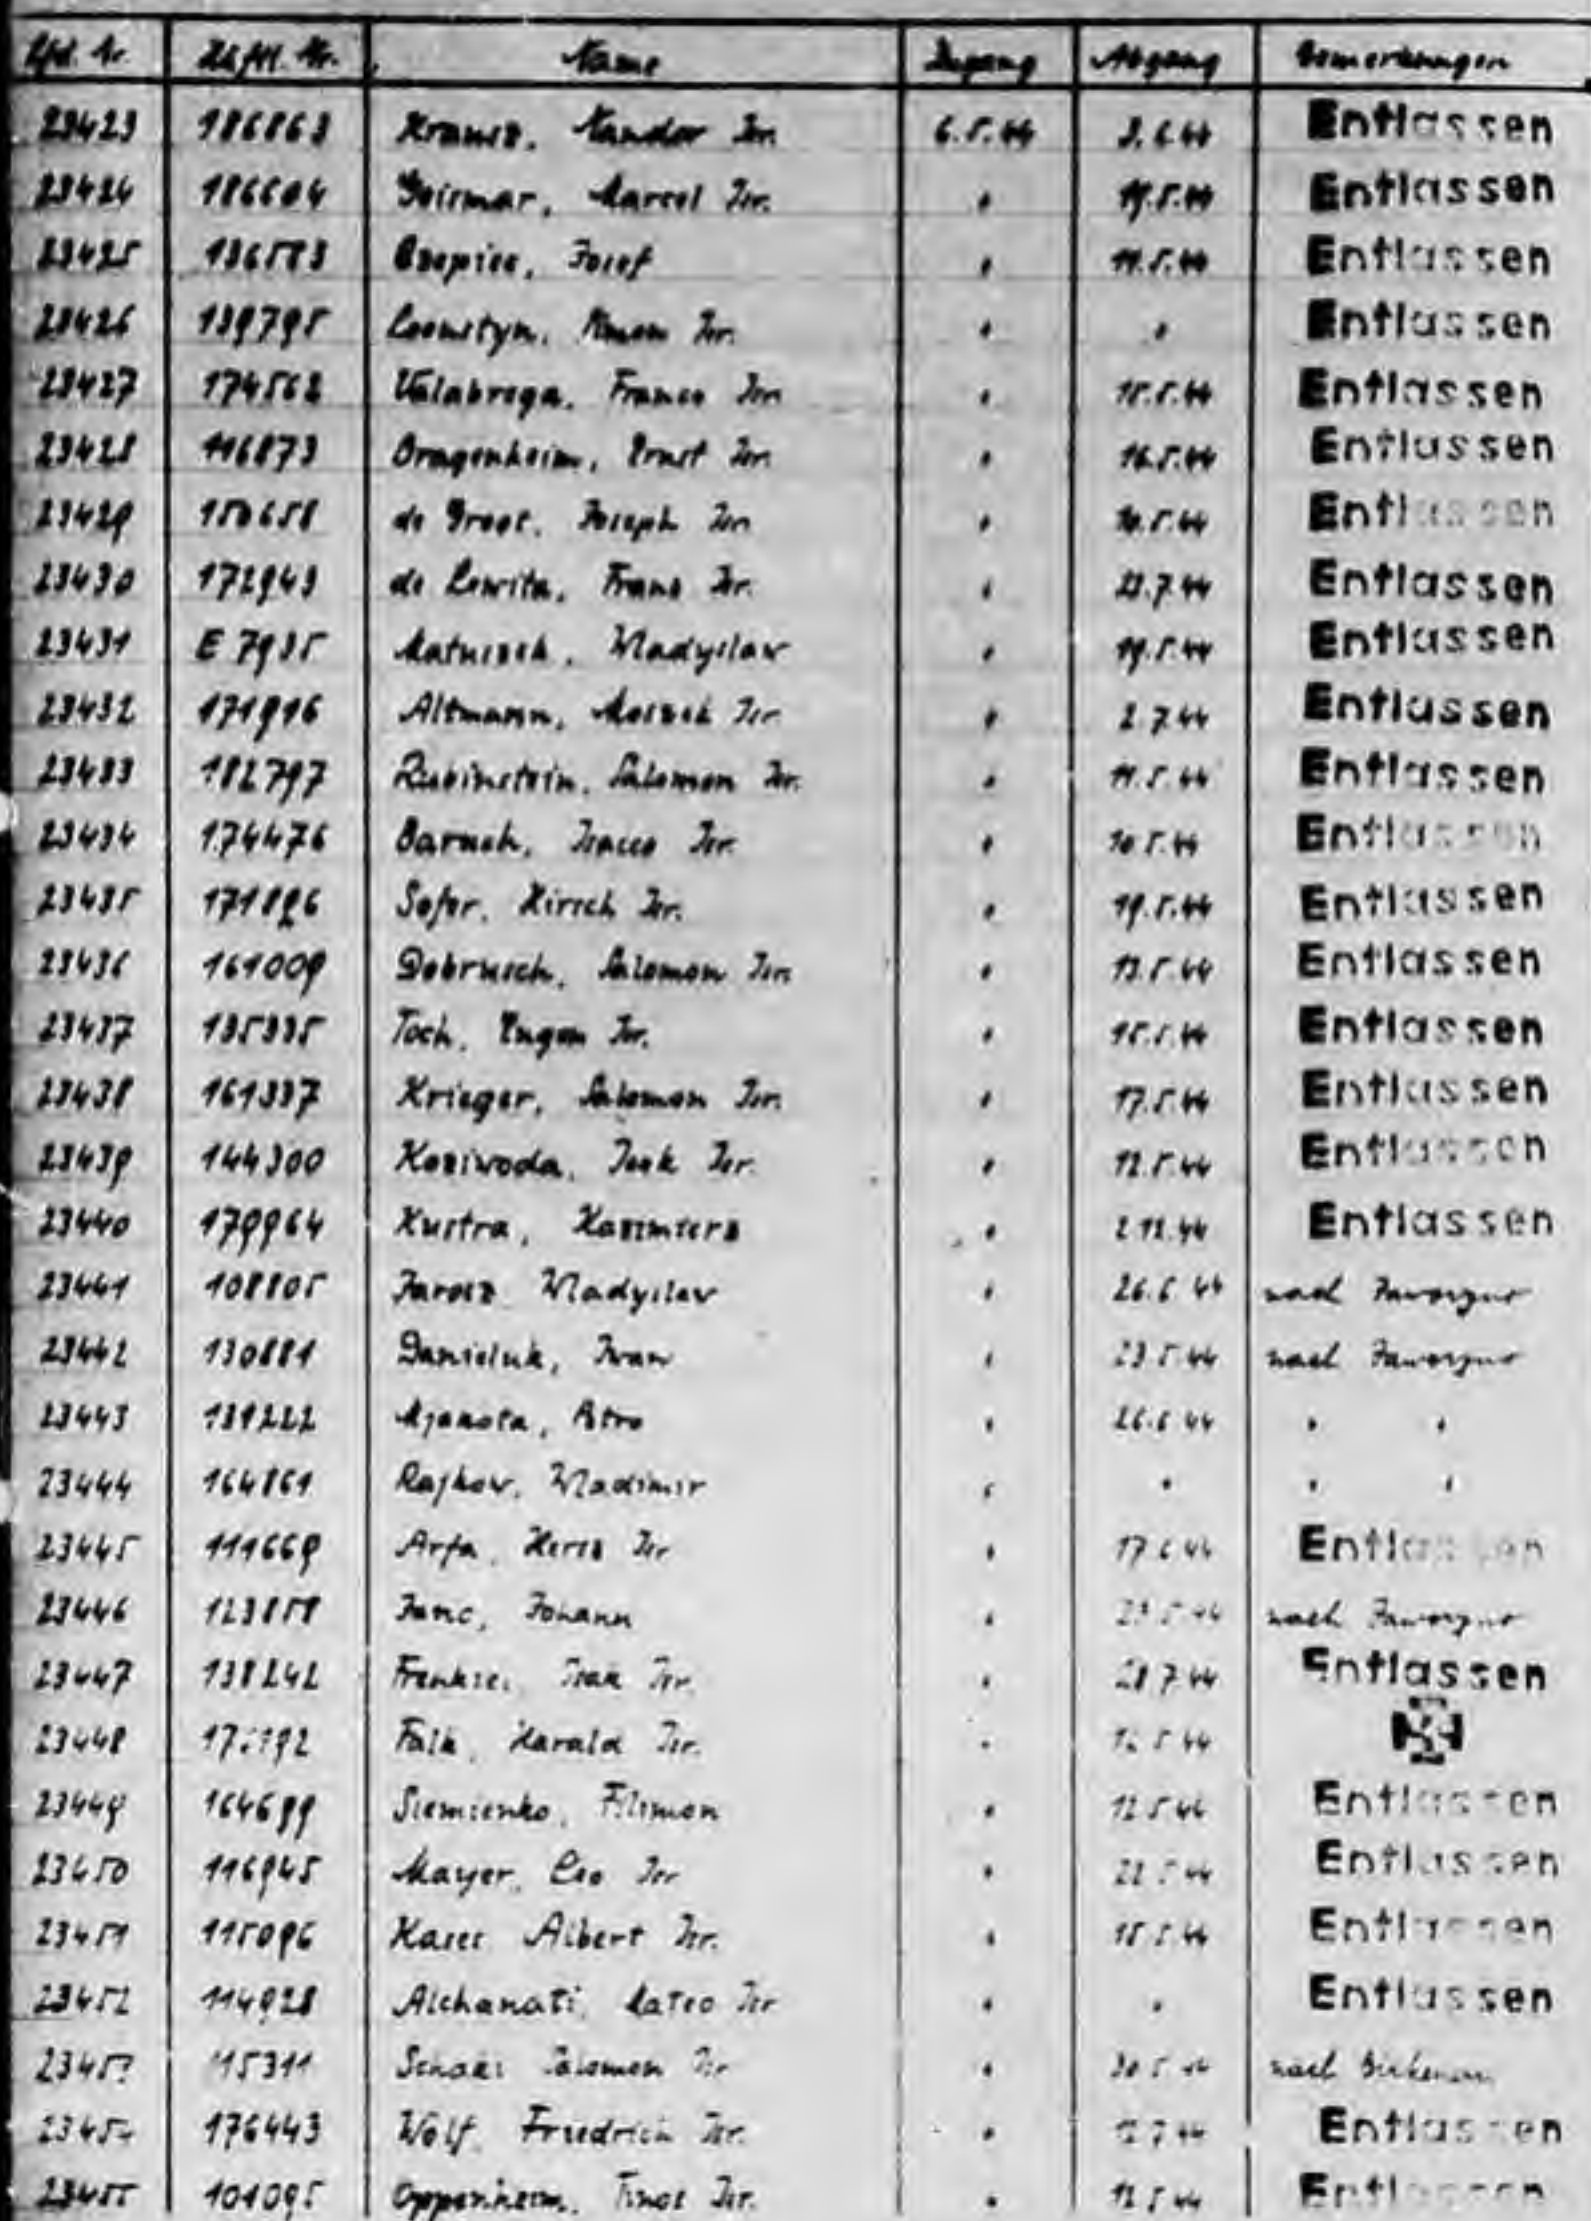 Lfd. Nr. Häftl. Nr. Name Zugang Abgang Bemerkungen
23423 186863 Krausz, Nandor Isr. 6.5.44 3.6.44 Entlassen
23424 186604 Marcel Isr. " 19.5.44 Entlassen
23425 Josef " 11.5.44 Entlassen
23426 139795 Isr. " " Entlassen
23427 174562 Valabrega, Franco Isr. " 15.5.44 Entlassen
23428 116873 Dragenheim, Ernst Isr. " 16.5.44 Entlassen
23429 150658 de Groot, Joseph Isr. " 10.5.44 Entlassen
23430 172943 de Lewita, Frans Isr. " Entlassen
23431 E 7935 Matuszek, Wladyslaw " 19.5.44 Entlassen
23432 171916 Altmann, Isr. " 2.7.44 Entlassen
23433 182797 Rubinstein, Salomon Isr. " 11.5.44 Entlassen
23434 174476 Baruch, Isr. " 10.5.44 Entlassen
23435 171896 Sofer, Hirsch Isr. " 19.5.44 Entlassen
23436 161009 Dobrusch, Salomon Isr. " 13.5.44 Entlassen
23437 135335 Toch, Eugen Isr. " 15.5.44 Entlassen
23438 161337 Krieger, Salomon Isr. " 17.5.44 Entlassen
23439 144300 Koziwoda, Icek Isr. " 12.5.44 Entlassen
23440 179964 Kustra, Kazimierz " 2.12.44 Entlassen
23441 108805 Jarosz Wladyslaw " 26.6.44 nach Jaworzno
23442 130881 Danieluk, Iwan " 23.5.44 nach Jaworzno
23443 Petro " 26.6.44 " "
23444 164861 Rajkow, Wladimir " " " "
23445 111669 Arfa, Hersz Isr " 17.6.44 Entlassen
23446 Janc, Johann " 23.5.44 nach Jaworzno
23447 138242 Isak Isr. " 28.7.44 Entlassen
23448 Falk, Harald Isr. "
23449 164699 Siemienko, Filimon " 12.5.44 Entlassen
23450 116945 Mayer, Leo Isr " 22.5.44 Entlassen
23451 115096 Albert Isr. " 15.5.44 Entlassen
23452 114928 Alchanati, Mateo Isr " " Entlassen
15311 Salomon Isr " 30.5.44 nach Birkenau
176443 Wolf, Friedrich Isr. " Entlassen
23455 101095 Oppenheim, Isr. " 12.5.44 Entlassen